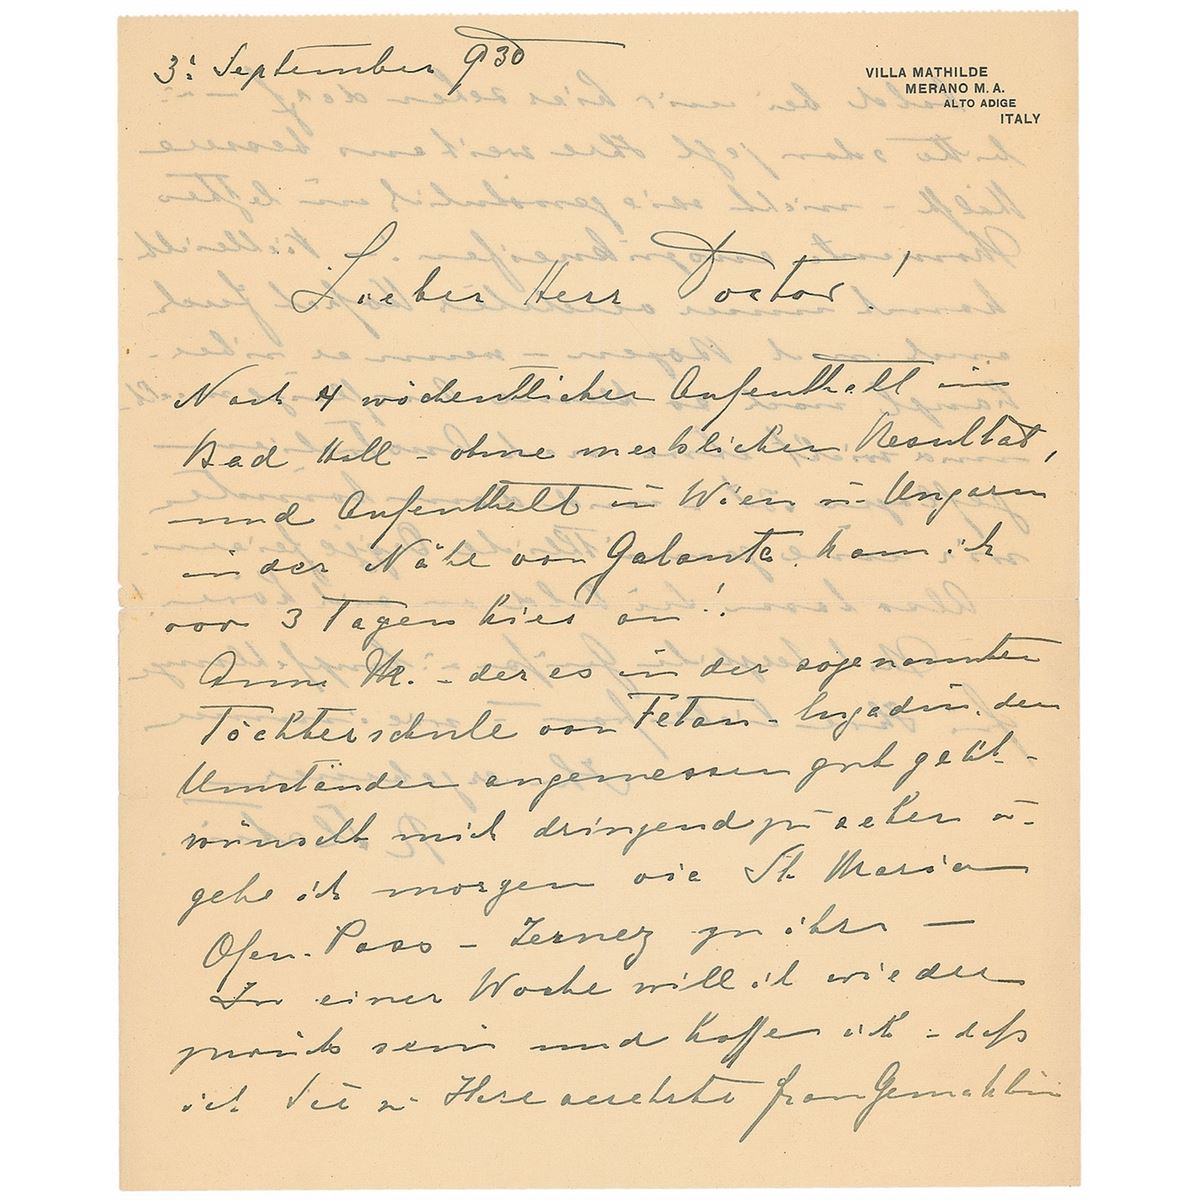 3. September 930
VILLA MATHILDE
MERANO M. A.
ALTO ADIGE
ITALY
Lieber Herr Doctor!
Nach 4 wöchentlicher Aufenthalt im
Bad Hall - ohne merklichen Resultat,
und Aufenthalt in Wien u. Ungarn
in der Nähe von Galanta kam ich
vor 3 Tagen hier an!
Anne M. - der es in der sogenannten
Töchterschule von Fetan - Engadin, den
Umständen angemessen gut geht -
wünscht mich dringend zu sehen u.
gehe ich morgen via St. Maria
Ofen-Pass - Zernez zu ihr -
In einer Woche will ich wieder
zurück sein und hoffe ich - daß
ich Sie u. Ihre verehrte Frau Gemahlin